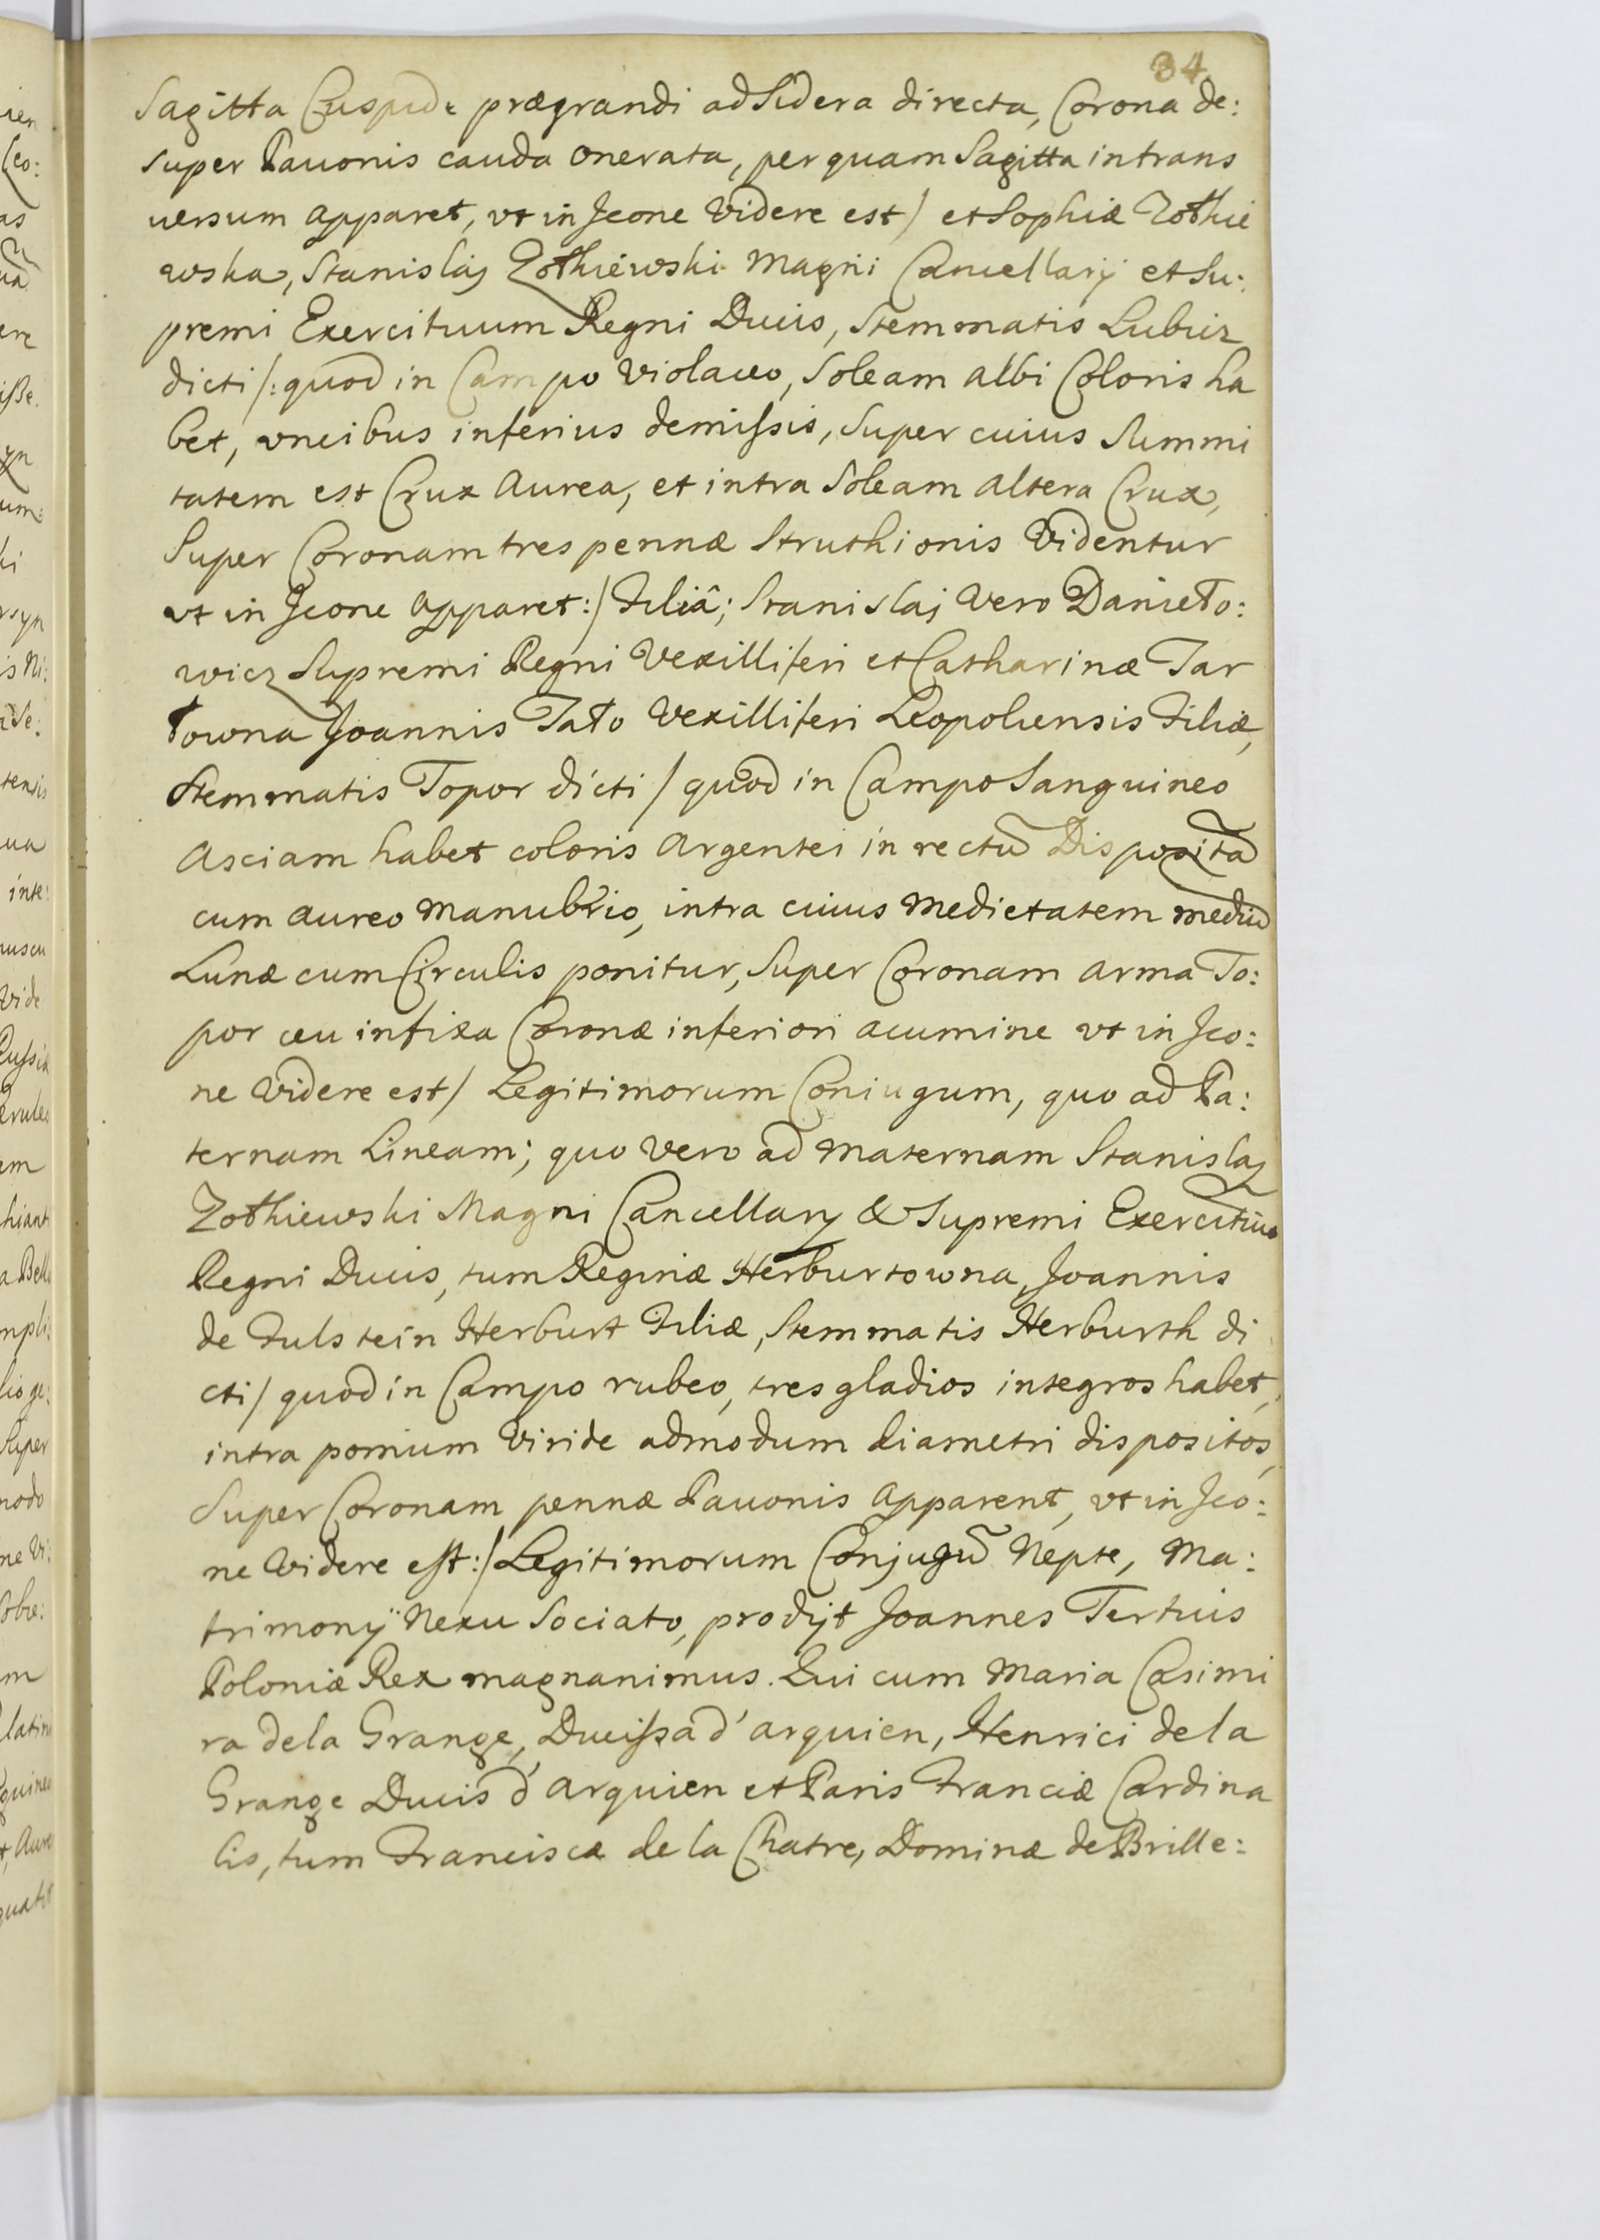 34
Sagitta Cuspide prægrandi ad Sidera directa, Corona de:
super Pauonis cauda onerata, per quam Sagitta in trans
uersum apparet, vt in Icone Videre est/ et Sophiæ Żołkie
wska, Stanislaj Żołkiewski Magni Cancellarij et Su:
premi Exercituum Regni Ducis, Stemmatis Lubicz
dicti/: quod in Campo Violaceo, Soleam albi Coloris ha
bet, vncibus inferius demissis, Super cuius Summi
tatem est Crux Aurea, et intra Soleam altera Crux,
Super Coronam tres pennæ Struthionis Videntur
vt in Icone Apparet:/ Filiâ; Stanislaj Vero Danieło:
wicz Supremi Regni Vexilliferi et Catharinæ Tar
łowna Joannis Tało Vexilliferi Leopoliensis Filiæ,
Stemmatis Topor dicti / quod in Campo Sanguineo
Asciam habet coloris Argentei in rectũ Dispositã
cum aureo Manubrio, intra cuius Medietatem mediũ
Lunæ cum Circulis ponitur, Super Coronam arma To:
por ceu infixa Coronæ inferiori acumine vt in Ico:
ne Videre est/ Legitimorum Coniugum, quo ad Pa:
ternam Lineam; quo Vero ad Maternam Stanislaj
Żołkiewski Magni Cancellarij & Supremi Exercituũ
Regni Ducis, tum Reginæ Herburtowna, Joannis
de Fulstein Herburt Filiæ, Stemmatis Herburth di
cti/ quod in Campo rubeo, tres gladios integros habet,
intra pomum Viride admodum diametri dispositos,
Super Coronam pennæ Pauonis Apparent, vt in Ico:
ne Videre est:/ Legitimorum Conjugũ Nepte, Ma:
trimonij Nexu Sociato, prodijt Joannes Tertius
Poloniæ Rex magnanimus. Qui cum Maria Casimi
ra de la Grange, Ducissa d' arquien, Henrici de la
Grange Ducis d' Arquien et Paris Franciæ Cardina
lis, tum Franciscæ de la Chatre, Dominæ de Brille: